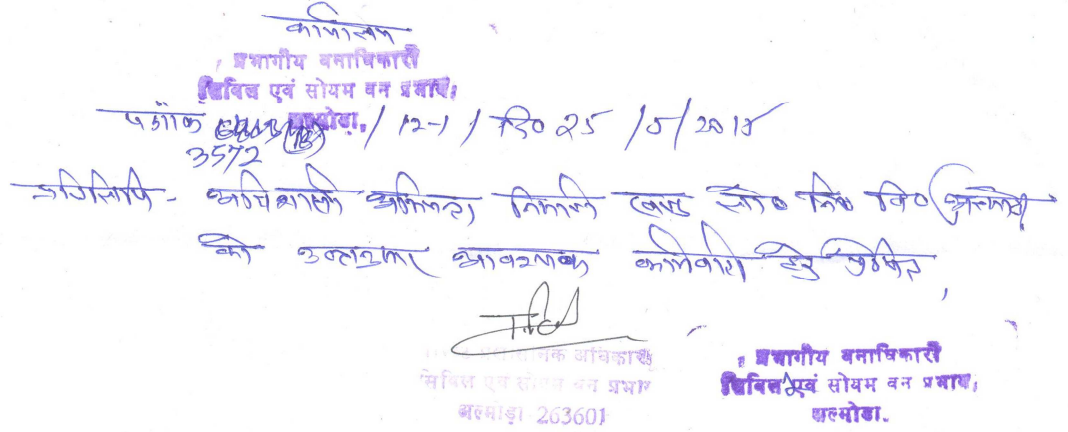 कार्यालय
प्रभागीय वनाधिकारी
सिविल एवं सोयम वन प्रभाग,
अल्मोड़ा.
पत्रांक / 12-1 / दि० 25 /5/ 2018
3572
प्रतिलिपि - अधिशासी अभियन्ता निर्माण खण्ड लो० नि० वि० अल्मोड़ा
को उक्तानुसार आवश्यक कार्यवाही हेतु प्रेषित,
प्रशासनिक अधिकारी
सिविल एवं सोयम वन प्रभाग
अल्मोड़ा 263601
प्रभागीय वनाधिकारी
सिविल एवं सोयम वन प्रभाग,
अल्मोड़ा.